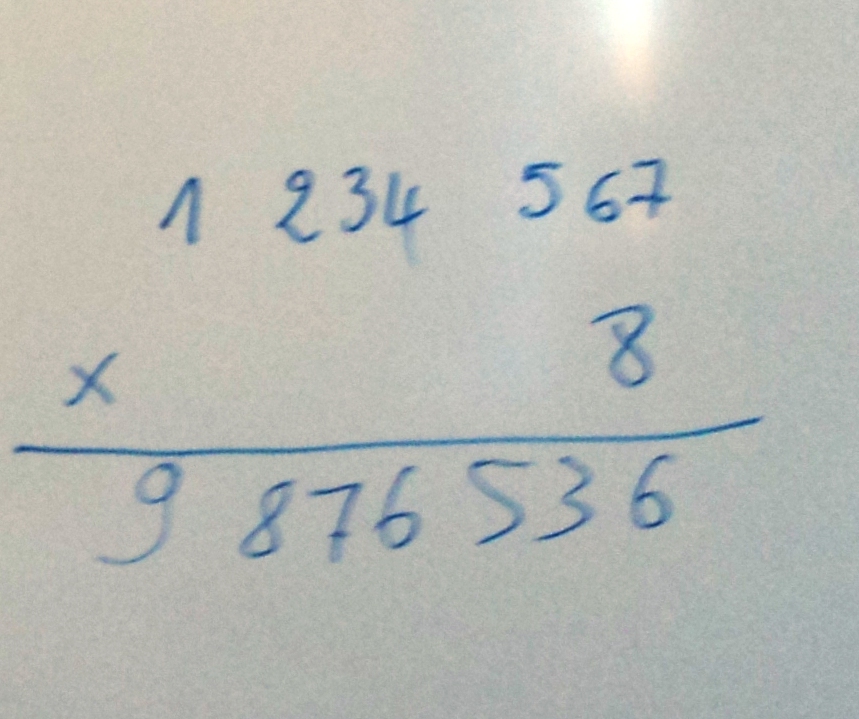 1 234 567
× 8
9 876 536